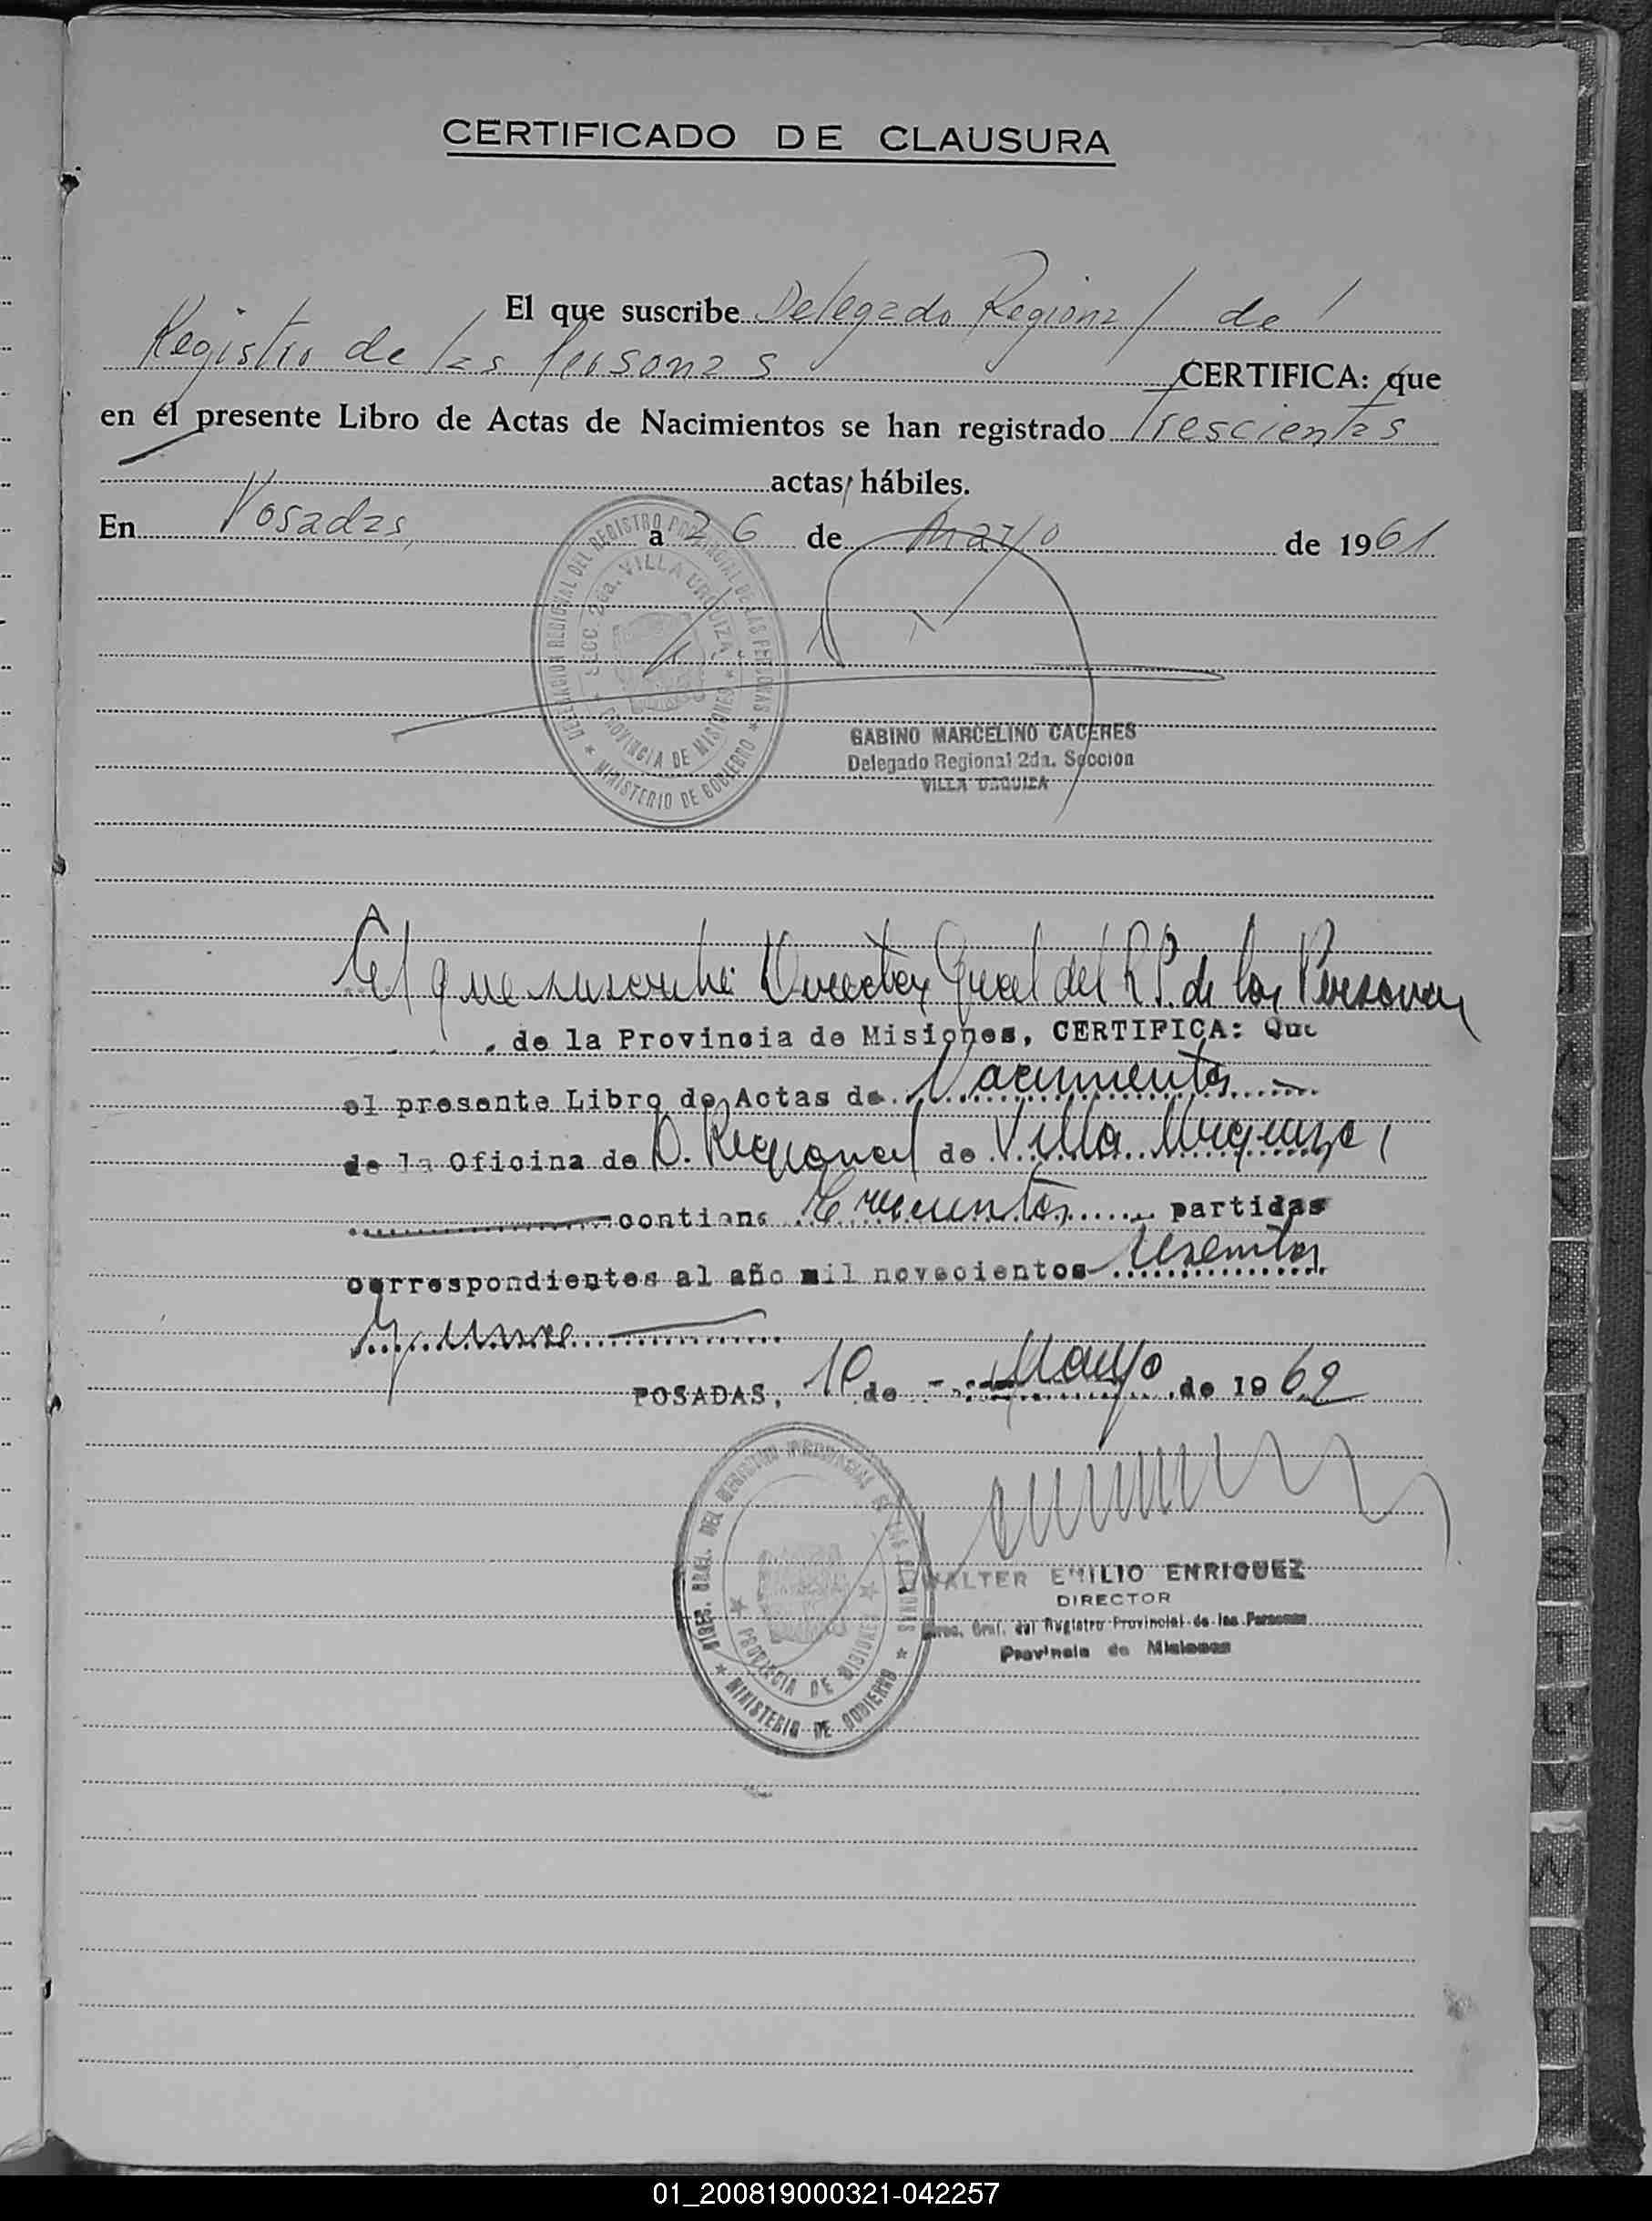 CERTIFICADO DE CLAUSURA
El que suscribe Delegado Regional del
Registro de las Personas CERTIFICA: que
en el presente Libro de Actas de Nacimientos se han registrado Trescientas
actas hábiles.
En Posadas, a 26 de mayo de 1961
DELEGACION REGIONAL DEL REGISTRO PROVINCIAL DE LAS PERSONAS
SECC. 2da. VILLA URQUIZA
PROVINCIA DE MISIONES
MINISTERIO DE GOBIERNO
GABINO MARCELINO CACERES
Delegado Regional 2da. Sección
VILLA URQUIZA
El que suscribe Director Gral del R.P. de las Personas
de la Provincia de Misiones, CERTIFICA: Que
el presente Libro de Actas de Nacimientos
de la Oficina de D. Regional de Villa Urquiza
contiene Trescientos partidas
correspondientes al año mil novecientos sesenta
y uno
POSADAS, 10 de Mayo de 1962
DIREC. GRAL. DEL REGISTRO PROVINCIAL DE LAS PERSONAS
PROVINCIA DE MISIONES
MINISTERIO DE GOBIERNO
WALTER EMILIO ENRIQUEZ
DIRECTOR
Direc. Gral. del Registro Provincial de las Personas
Provincia de Misiones
01_200819000321-042257